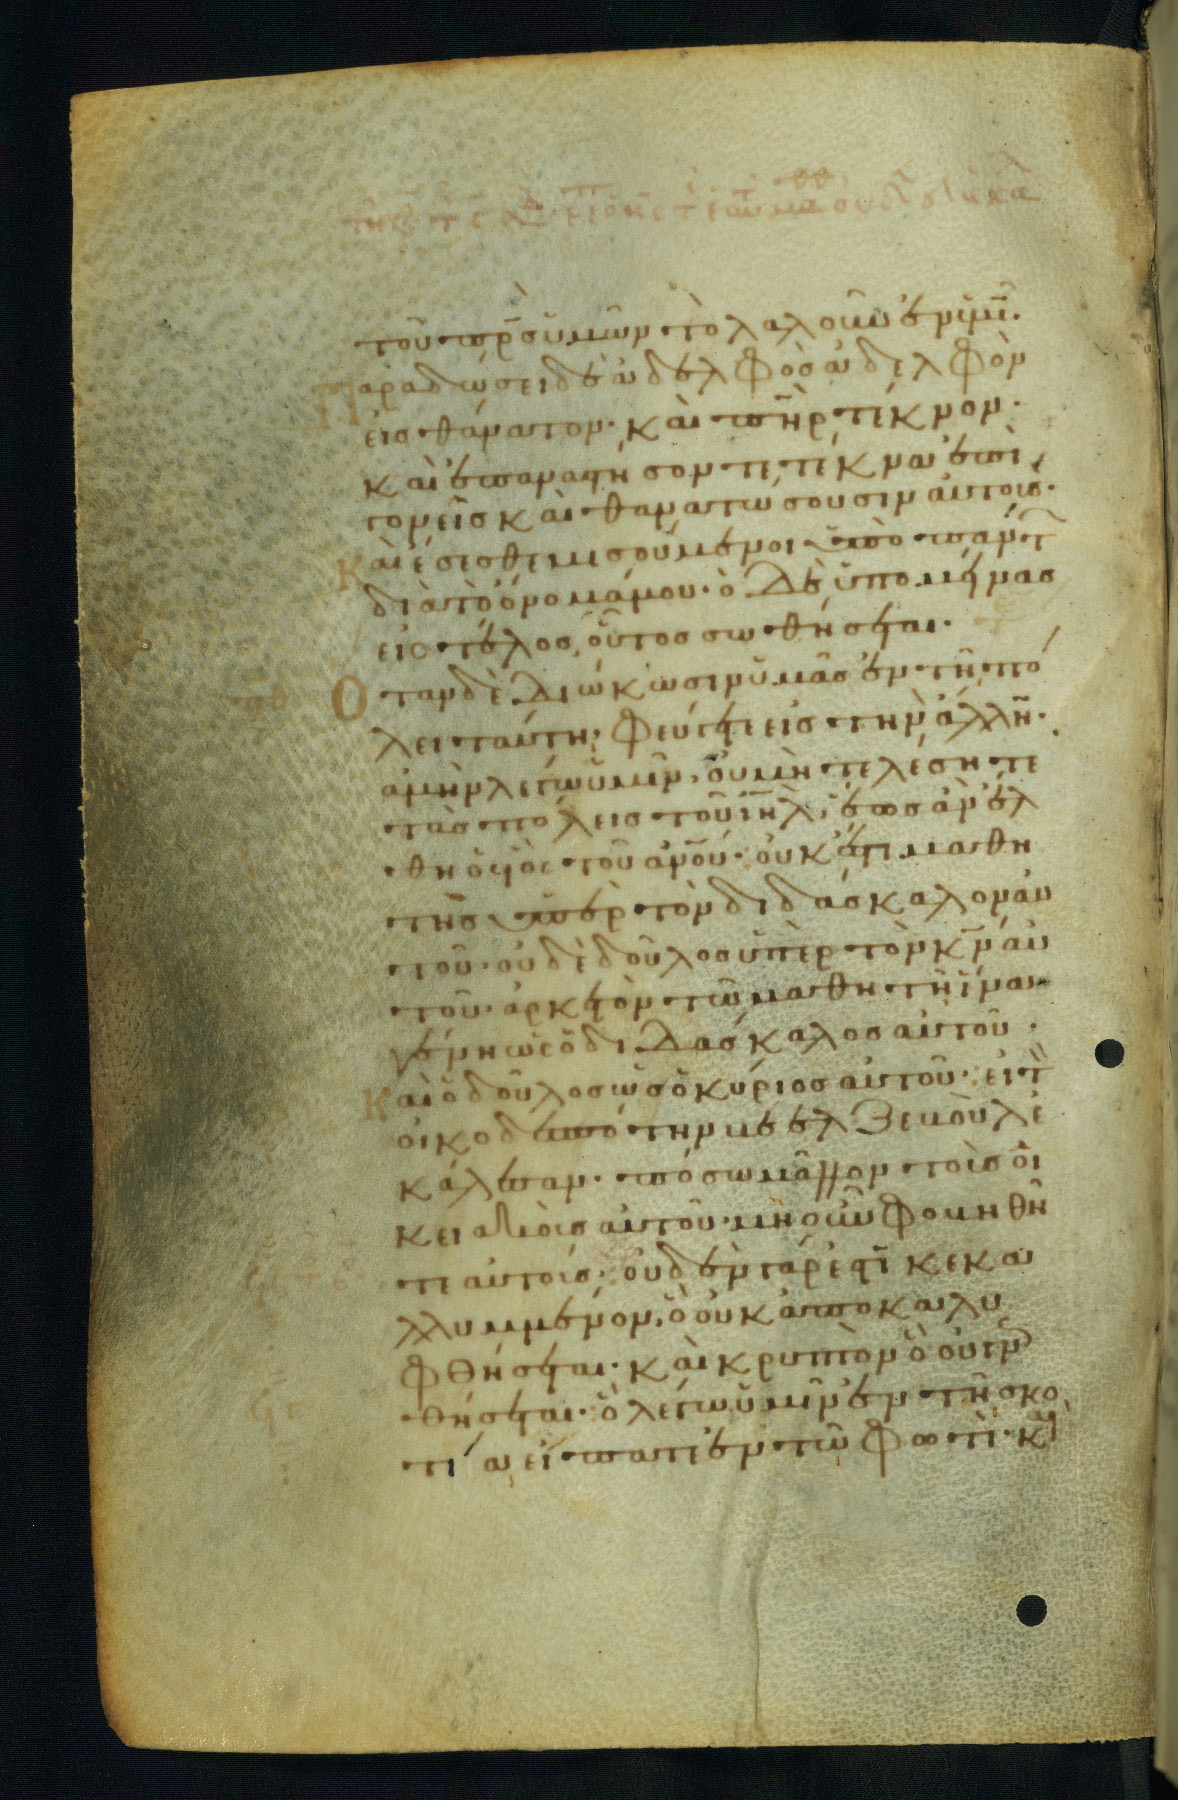 τοῦ πρ̅ς ὑμῶν τὸ λαλοῦν ἐν ὑμῖ̅.
Παραδώσει δὲ ἀδελφὸς ἀδελφὸν
εἰς θάνατον· καὶ πη̅ρ τέκνον·
καὶ ἐπαναστήσονται τέκνα ἐπὶ
γονεῖς καὶ θανατώσουσιν αὐτούς·
Καὶ ἔσεσθε μισούμενοι ὑπὸ πάντ
διὰ τὸ ὄνομά μου· ὁ δὲ ὑπομήνας
εἰς τέλος, οὗτος σωθήσεται·
Ὅταν δὲ διώκωσιν ὑμᾶς ἐν τῇ πό
λει ταύτῃ· φεύγετε εἰς τὴν ἄλλη̅·
ἀμὴν λέγω ὑμῖν, οὐ μὴ τελέσητε
τὰς πόλεις τοῦ ἰη̅λ, ἕως ἂν ἔλ
θη ὁ υἱὸς τοῦ ἀν̅ου· οὐκ ἔστι μαθη
τὴς ὑπὲρ τὸν διδάσκαλον αὐ
τοῦ· οὐδὲ δοῦλος ὑπὲρ τὸν κ̅ν αὐ
τοῦ· ἀρκετὸν τῷ μαθητῇ ἵνα
γένηται ὡς ὁ διδάσκαλος αὐτοῦ·
Καὶ ὁ δοῦλος ὡς ὁ κύριος αὐτοῦ· εἰ τὸν
οἰκοδεσπότην βεελζεβοὺλ ἐ
κάλεσαν· πόσω μᾶλλον τοὺς οἰ
κειακοὺς αὐτοῦ· μὴ οὖν φοβηθῆ
τε αὐτούς· οὐδὲν γάρ ἐστι κεκα
λλυμμένον, ὃ οὐκ ἀποκαλυ
φθήσεται· καὶ κρυπτὸν ὃ οὐ γν
θήσεται· ὃ λέγω ὑμῖν ἐν τῇ σκο
τία, εἴπατε ἐν τῷ φωτί· κ̀